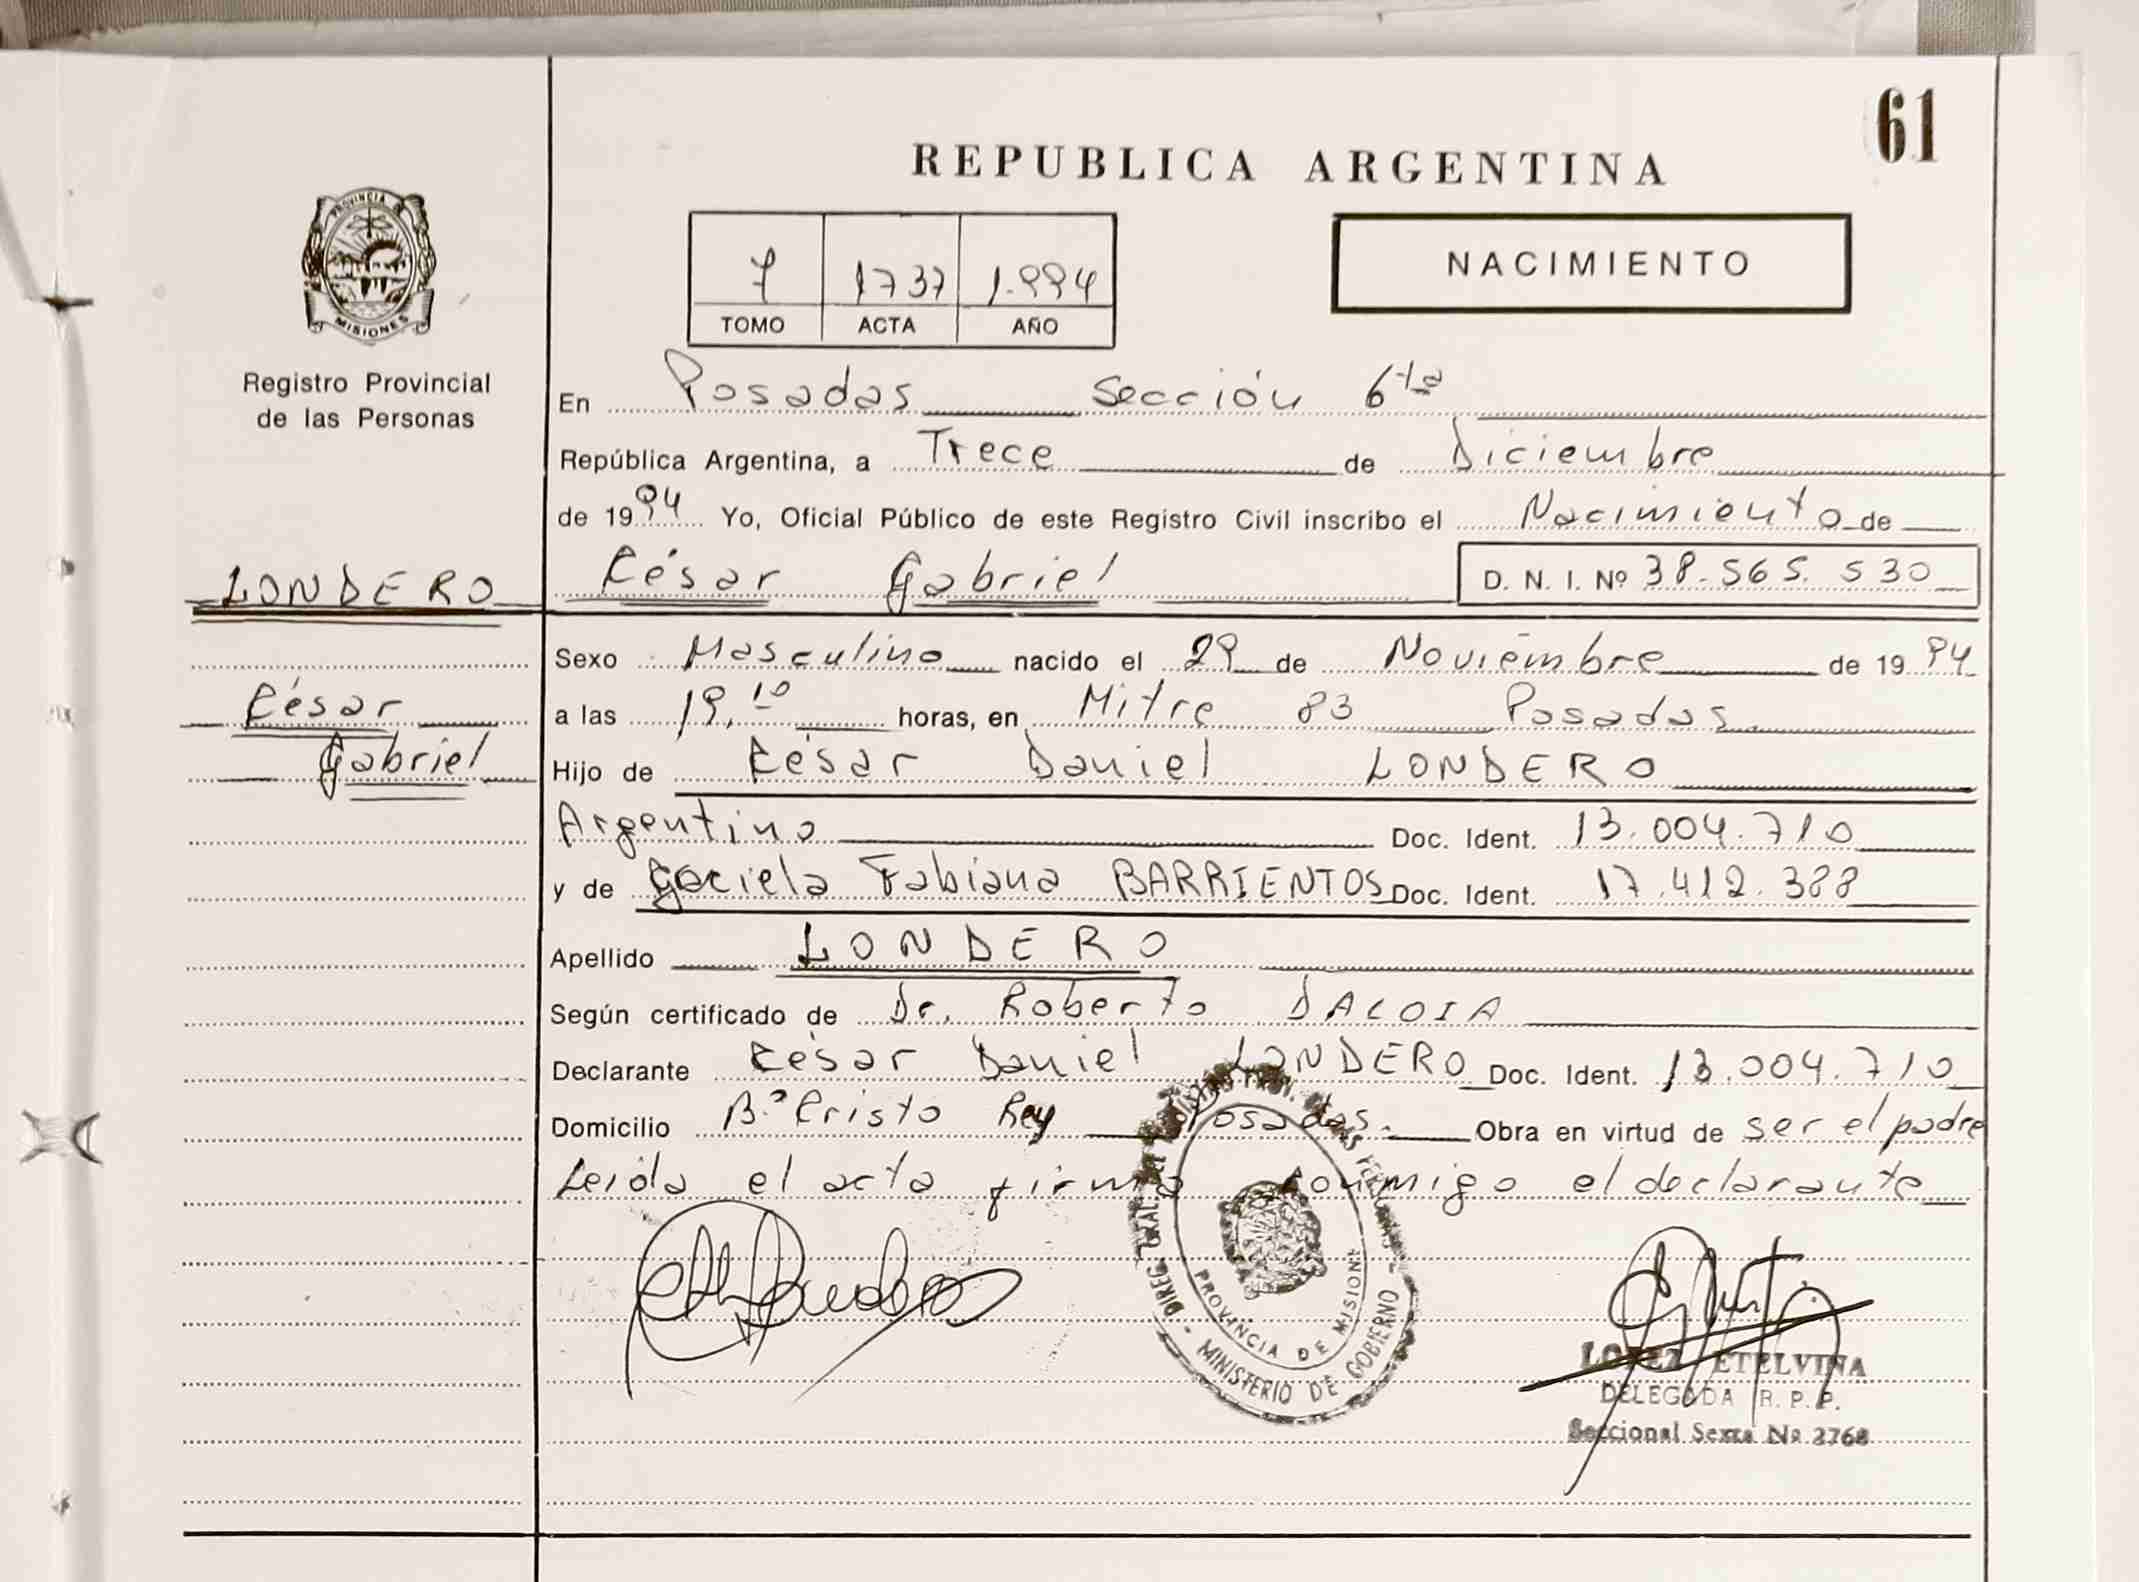 61
REPUBLICA ARGENTINA
PROVINCIA DE
MISIONES
Registro Provincial
de las Personas
7 1737 1.994
TOMO ACTA AÑO
NACIMIENTO
En Posadas Sección 6ta
República Argentina, a Trece de Diciembre
de 1994 Yo, Oficial Público de este Registro Civil inscribo el Nacimiento de
LONDERO César Gabriel D. N. I. Nº 38.565.530
Sexo Masculino nacido el 29 de Noviembre de 1994
César a las 19,10 horas, en Mitre 83 Posadas
Gabriel Hijo de César Daniel LONDERO
Argentino Doc. Ident. 13.004.710
y de Graciela Fabiana BARRIENTOS Doc. Ident. 17.412.388
Apellido LONDERO
Según certificado de Dr. Roberto DALOIA
Declarante César Daniel LONDERO Doc. Ident. 13.004.710
Domicilio B.º Cristo Rey Posadas. Obra en virtud de ser el padre
Leída el acta firma conmigo el declarante
PROVINCIA DE MISIONES
MINISTERIO DE GOBIERNO
LOPEZ ETELVINA
DELEGADA R. P. P.
Seccional Sexta Nº 3768